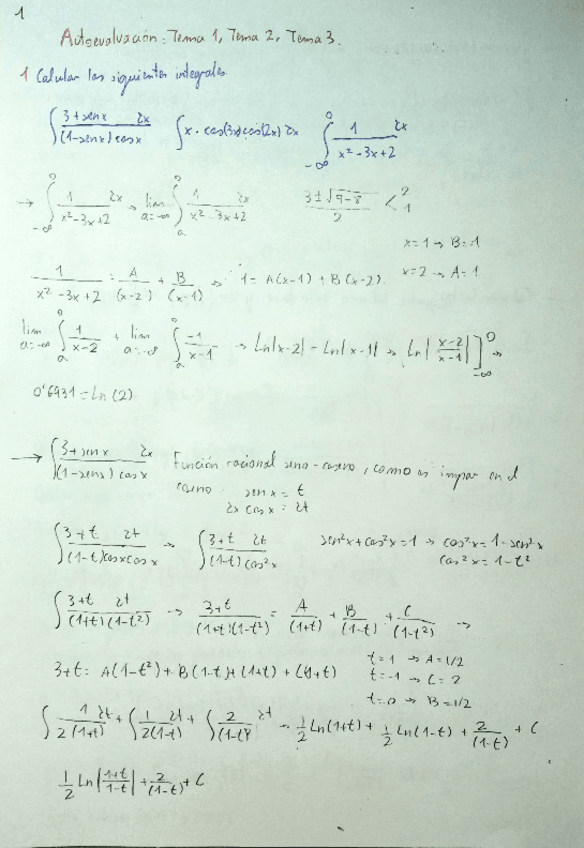 1
Autoevaluación: Tema 1, Tema 2, Tema 3.
1 Calcular las siguientes integrales
∫ (3+sen x)/((1-sen x) cos x) dx ∫ x · cos(3x) cos(2x) dx ∫_{-∞}^{0} 1/(x²-3x+2) dx
→ ∫_{-∞}^{0} 1/(x²-3x+2) dx → lim_{a→-∞} ∫_{a}^{0} 1/(x²-3x+2) dx (3±√(9-8))/2 < 2 1
x=1 → B=-1
1/(x²-3x+2) = A/(x-2) + B/(x-1) → 1 = A(x-1) + B(x-2). x=2 → A=1
lim_{a→-∞} ∫_{a}^{0} 1/(x-2) + lim_{a→-∞} ∫_{a}^{0} -1/(x-1) → Ln|x-2| - Ln|x-1| → Ln|(x-2)/(x-1)|]_{-∞}^{0} →
0'6931 = Ln(2)
→ ∫ (3+sen x)/((1-sen x) cos x) dx Función racional seno-coseno, como es impar en el
coseno sen x = t
dx cos x = dt
∫ (3+t)/((1-t)cos x cos x) dt → ∫ (3+t)/((1-t) cos²x) dt sen²x+cos²x=1 → cos²x=1-sen²x
cos²x=1-t²
∫ (3+t)/((1+t)(1-t²)) dt → (3+t)/((1+t)(1-t²)) = A/(1+t) + B/(1-t) + C/(1-t²) →
3+t = A(1-t²) + B(1-t)+(1+t) + C(1+t) t=1 → A=1/2
t=-1 → C=2
t=0 → B=1/2
∫ 1/(2(1+t)) dt + ∫ 1/(2(1-t)) dt + ∫ 2/(1-t)² dt → 1/2 Ln(1+t) + 1/2 Ln(1-t) + 2/(1-t) + C
1/2 Ln|(1+t)/(1-t)| + 2/(1-t) + C